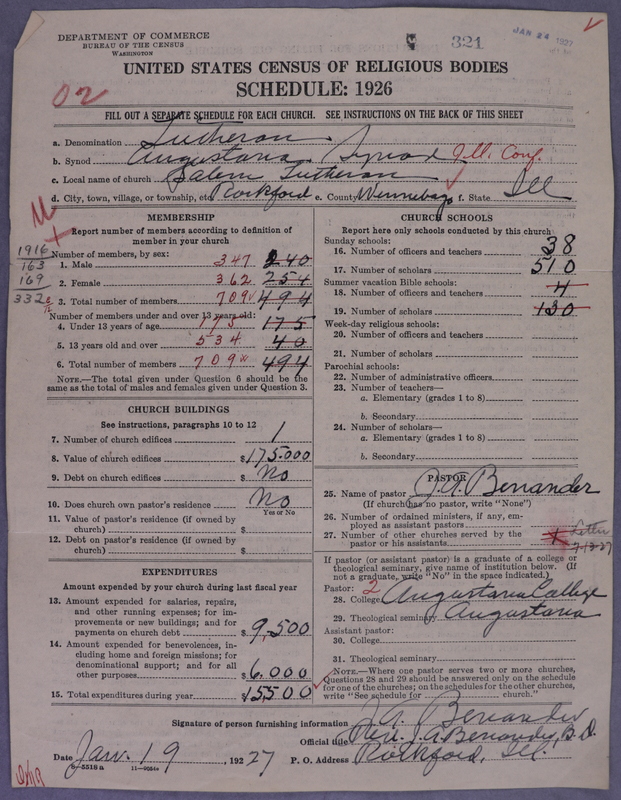 DEPARTMENT OF COMMERCE
BUREAU OF THE CENSUS
WASHINGTON
321
JAN 24 1927
UNITED STATES CENSUS OF RELIGIOUS BODIES
SCHEDULE: 1926
FILL OUT A SEPARATE SCHEDULE FOR EACH CHURCH. SEE INSTRUCTIONS ON THE BACK OF THIS SHEET
a. Denomination Lutheran
b. Synod Augustana Synod Ill. Conf.
c. Local name of church Salem Lutheran
d. City, town, village, or township, etc. Rockford e. County Winnebago f. State Ill
MEMBERSHIP
Report number of members according to definition of
member in your church
1916
163
169
332
Number of members, by sex:
1. Male 347 240
2. Female 362 254
3. Total number of members 709 494
Number of members under and over 13 years old:
4. Under 13 years of age 175 175
5. 13 years old and over 534 40
6. Total number of members 709 494
NOTE.—The total given under Question 6 should be the
same as the total of males and females given under Question 3.
CHURCH BUILDINGS
See instructions, paragraphs 10 to 12
7. Number of church edifices 1
8. Value of church edifices $175.000
9. Debt on church edifices $ No
10. Does church own pastor's residence No
Yes or No
11. Value of pastor's residence (if owned by
church) $
12. Debt on pastor's residence (if owned by
church) $
EXPENDITURES
Amount expended by your church during last fiscal year
13. Amount expended for salaries, repairs,
and other running expenses; for im-
provements or new buildings; and for
payments on church debt $ 9,500
14. Amount expended for benevolences, in-
cluding home and foreign missions; for
denominational support; and for all
other purposes $ 6.000
15. Total expenditures during year $15500
CHURCH SCHOOLS
Report here only schools conducted by this church
Sunday schools:
16. Number of officers and teachers 38
17. Number of scholars 510
Summer vacation Bible schools:
18. Number of officers and teachers 4
19. Number of scholars 130
Week-day religious schools:
20. Number of officers and teachers
21. Number of scholars
Parochial schools:
22. Number of administrative officers
23. Number of teachers—
a. Elementary (grades 1 to 8)
b. Secondary
24. Number of scholars—
a. Elementary (grades 1 to 8)
b. Secondary
PASTOR
25. Name of pastor J.A. Benander
(If church has no pastor, write "None")
26. Number of ordained ministers, if any, em-
ployed as assistant pastors
27. Number of other churches served by the
pastor or his assistants
Letter
7-13-27
If pastor (or assistant pastor) is a graduate of a college or
theological seminary, give name of institution below. (If
not a graduate, write "No" in the space indicated.)
Pastor: 2
28. College Augustana College
29. Theological seminary Augustana
Assistant pastor:
30. College
31. Theological seminary
NOTE.—Where one pastor serves two or more churches,
Questions 28 and 29 should be answered only on the schedule
for one of the churches; on the schedules for the other churches,
write "See schedule for church."
Signature of person furnishing information J.A. Benander
Official title Rev. J.A. Benander, B.D.
Date Jan. 19, 1927 P. O. Address Rockford, Ill.
9—5518a 11—9034a